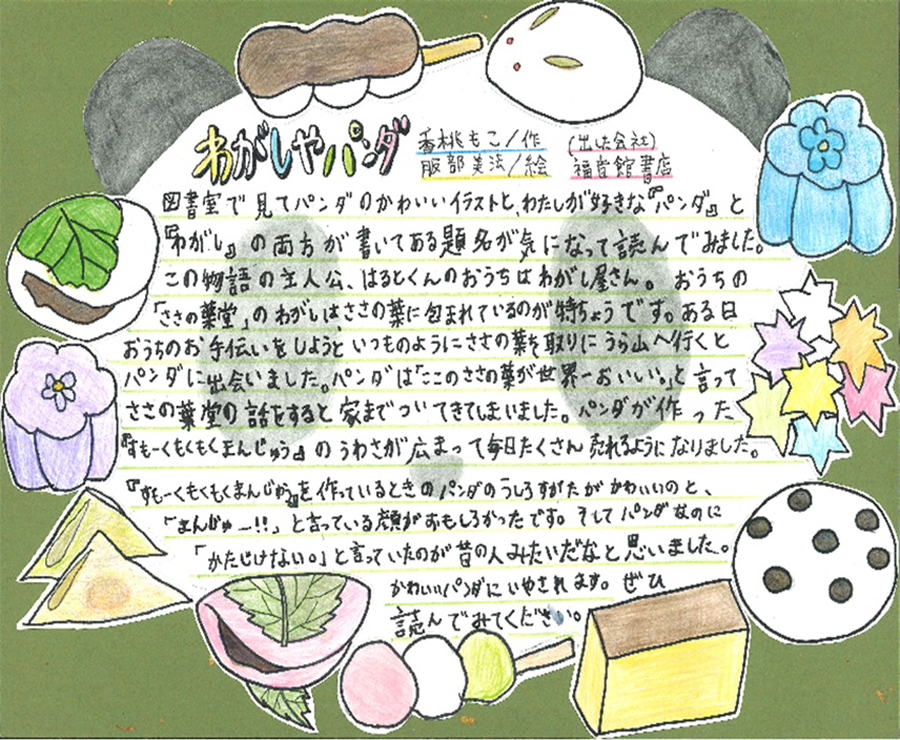 わがしやパンダ
香桃もこ/作 (出は会社)
服部美法/絵 福音館書店
図書室で見てパンダのかわいいイラストと、わたしが好きな『パンダ』と
『わがし』の両方が書いてある題名が気になって読んでみました。
この物語の主人公、はるとくんのおうちはわがし屋さん。おうちの
「ささの葉堂」のわがしは、ささの葉に包まれているのが特ちょうです。ある日
おうちのお手伝いをしようと、いつものようにささの葉を取りにうら山へ行くと
パンダに出会いました。パンダは「ここのささの葉が世界一おいしい。」と言って
ささの葉堂の話をすると家までついてきてしまいました。パンダが作った
『すもーくもくもくまんじゅう』のうわさが広まって毎日たくさん売れるようになりました。
『すもーくもくもくまんじゅう』を作っているときのパンダのうしろすがたがかわいいのと、
「まんじゅー!!」と言っている顔がおもしろかったです。そしてパンダなのに
「かたじけない。」と言っていたのが昔の人みたいだなと思いました。
かわいいパンダにいやされます。ぜひ
読んでみてください。